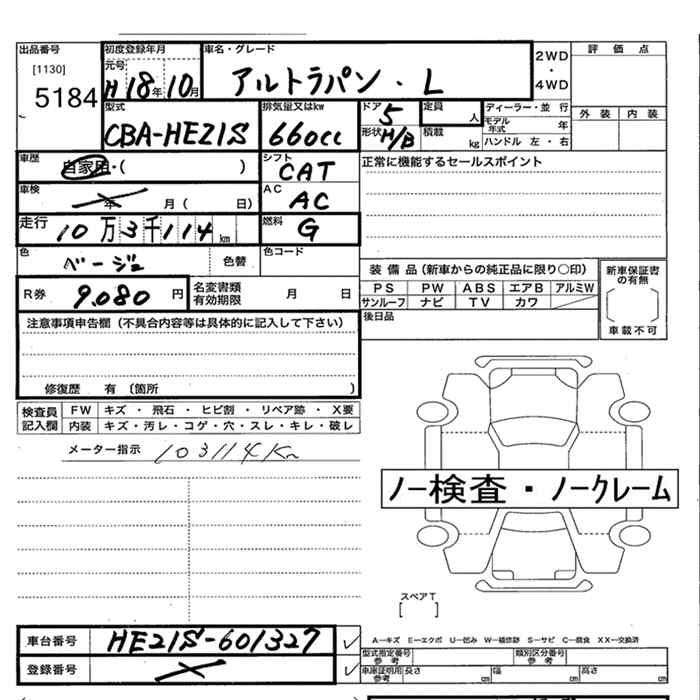 出品番号
[1130]
5184
初度登録年月
元号
H18年10月
車名・グレード
アルトラパン・L
2WD
・
4WD
評価点
外装 内装
型式
CBA-HE21S
排気量又はkw
660cc
ドア 5
形状 H/B
定員 人
積載 kg
ディーラー・並行
モデル年式 年
ハンドル 左・右
車歴
自家用・( )
シフト
CAT
正常に機能するセールスポイント
車検
年 月( 日)
AC
AC
走行
10万3千114km
燃料
G
色
ベージュ
色替
色コード
装備品(新車からの純正品に限り○印)
PS PW ABS エアB アルミW
サンルーフ ナビ TV カワ
後日品
新車保証書の有無
車載不可
R券 9,080円
名変書類有効期限 月 日
注意事項申告欄(不具合内容等は具体的に記入して下さい)
修復歴 有 〔箇所 )
検査員記入欄
FW キズ・飛石・ヒビ割・リペア跡・X要
内装 キズ・汚レ・コゲ・穴・スレ・キレ・破レ
メーター指示 103114Km
ノー検査・ノークレーム
スペアT
[ ]
車台番号 HE21S-601327
登録番号
A－キズ E－エクボ U－凹み W－補修跡 S－サビ C－腐食 XX－交換済
型式指定番号 参考
類別区分番号 参考
車庫証明用 参考 長さ cm 幅 cm 高さ cm